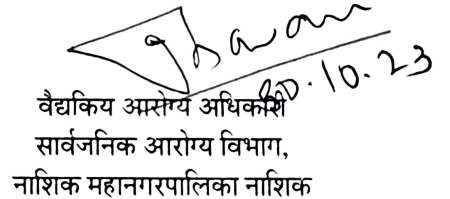 20.10.23
वैद्यकिय आरोग्य अधिकारी
सार्वजनिक आरोग्य विभाग,
नाशिक महानगरपालिका नाशिक